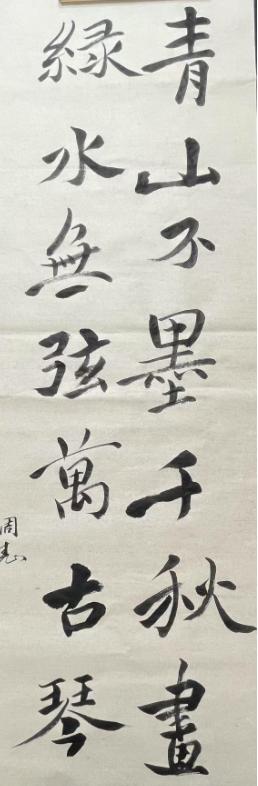 青山不墨千秋畫
綠水無弦萬古琴
周